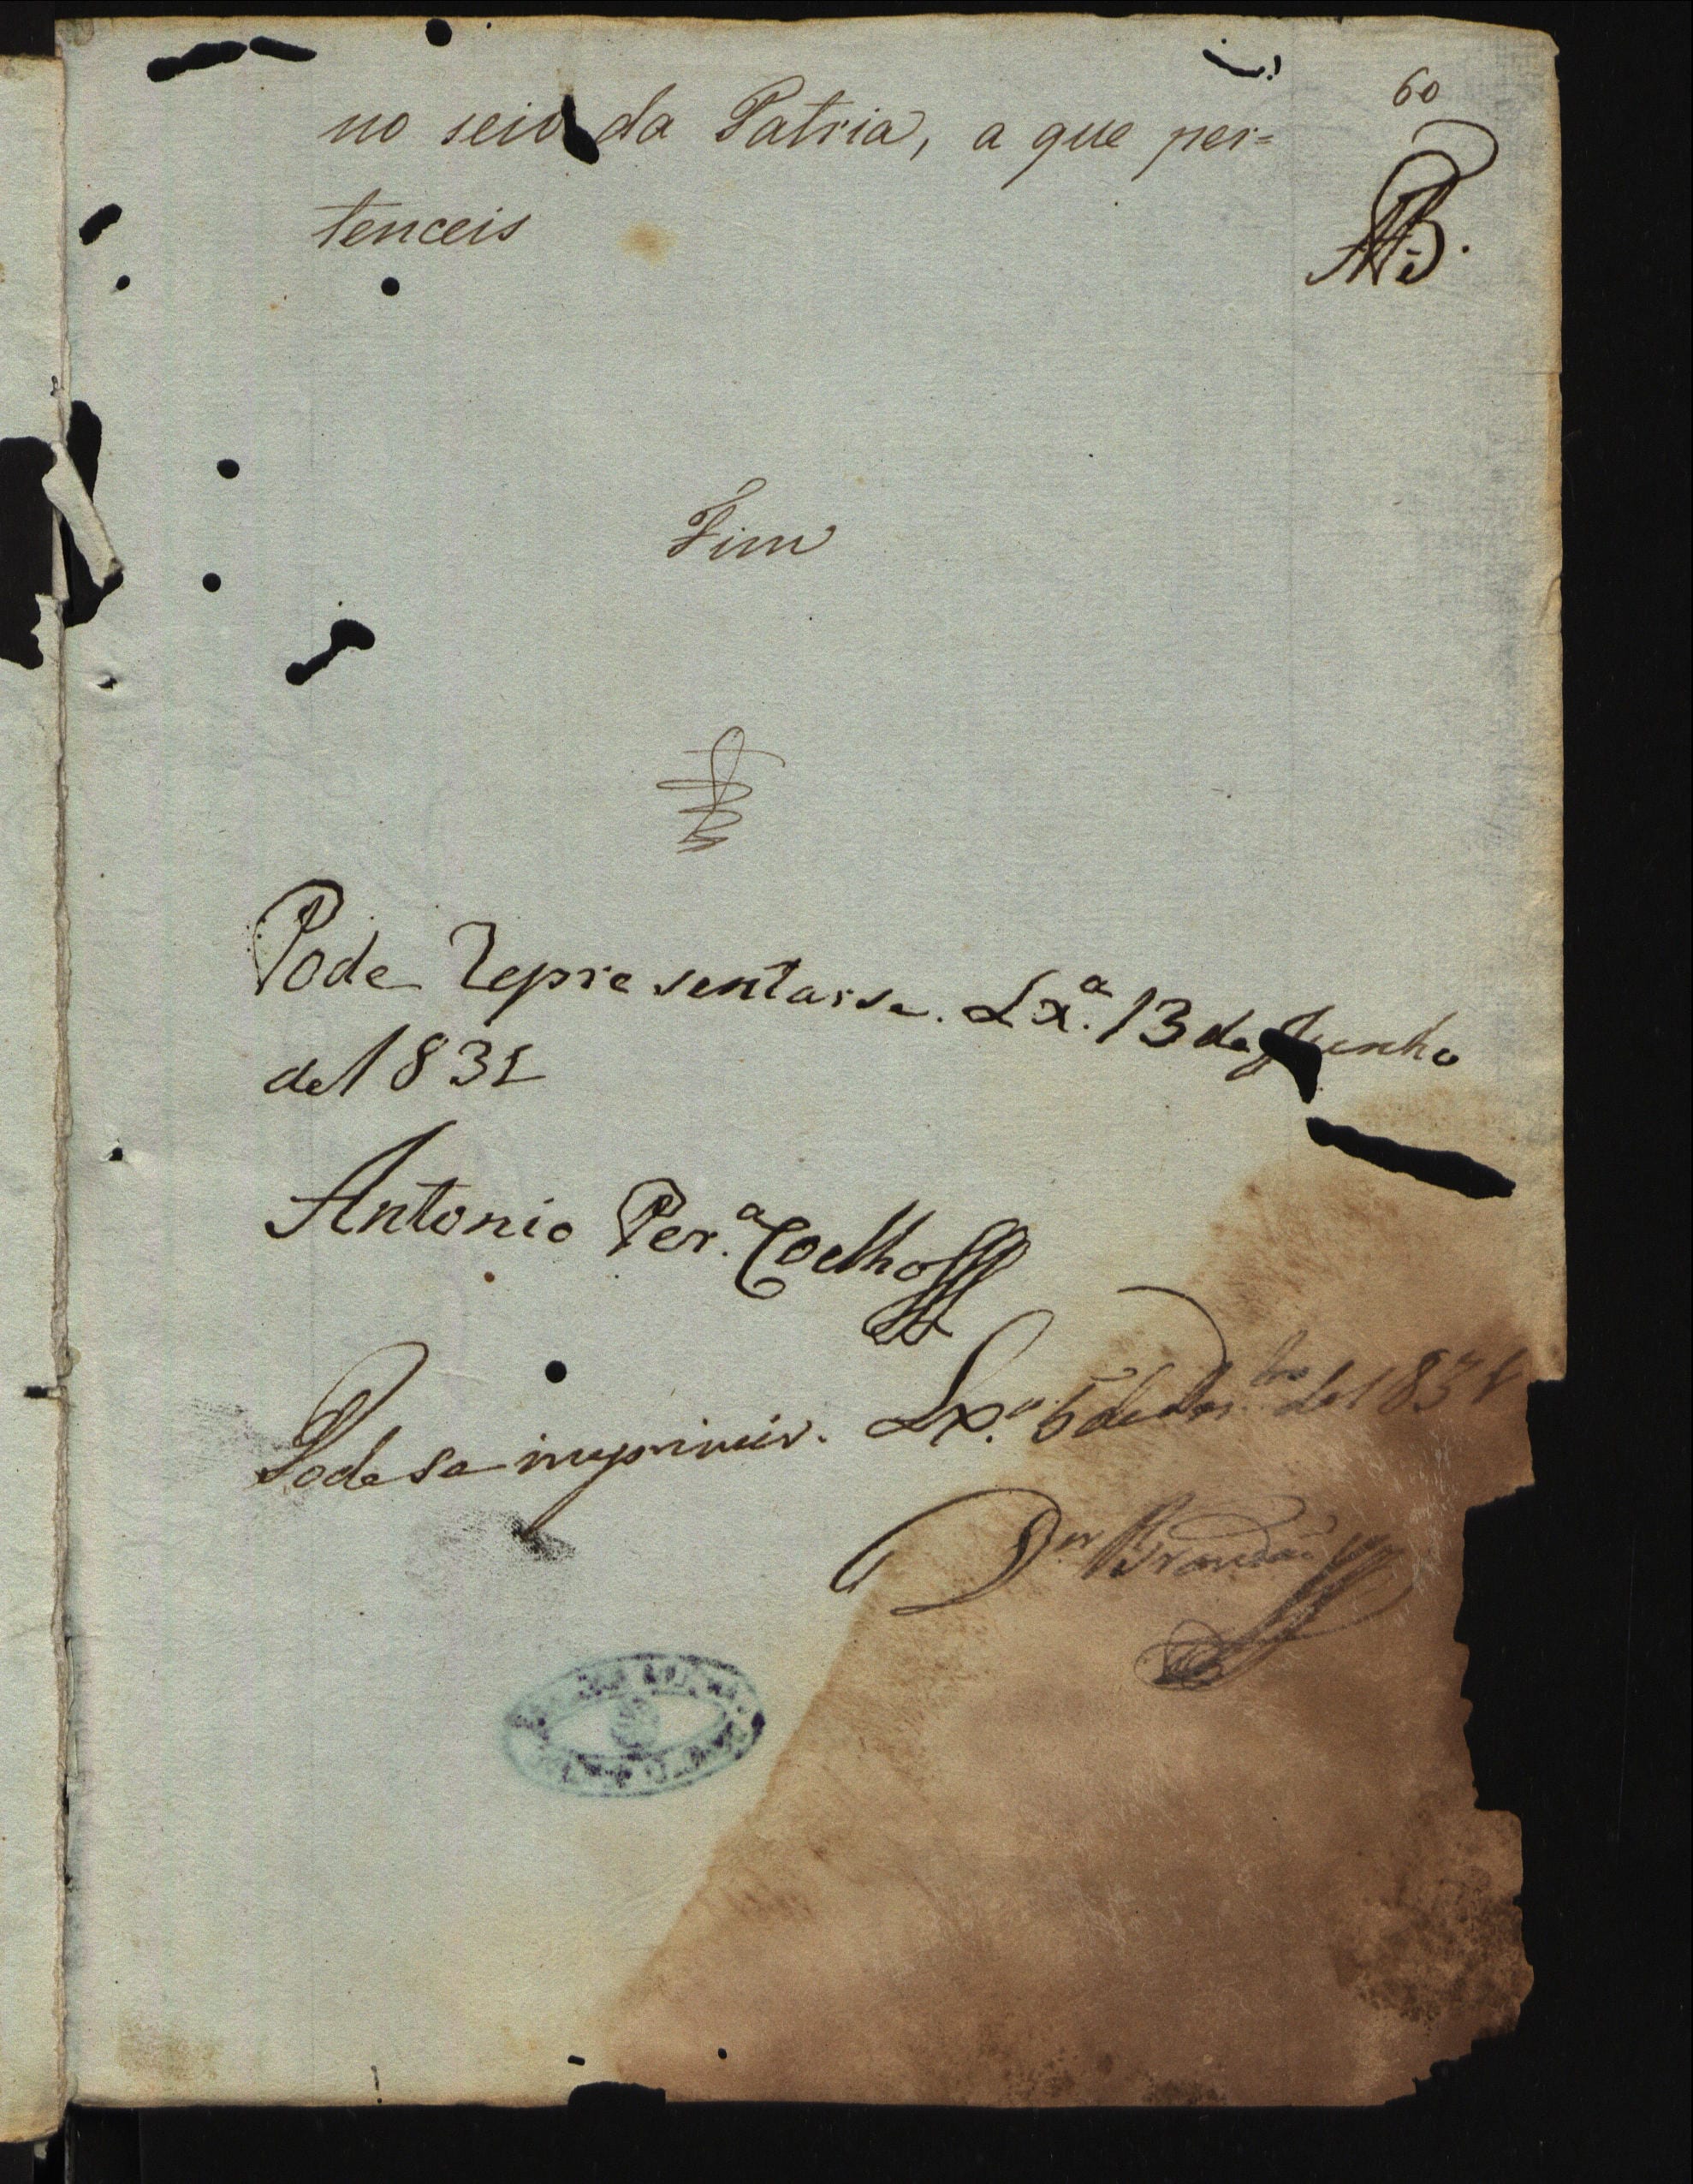 60
no seio da Patria, a que per=
tenceis
AB.
Fim
Pode representarse. Lx.ª 13 de Junho
de 1831
Antonio Per.ª Coelho
Pode se imprimir. Lx.ª 6 de de 1831
Brandaõ